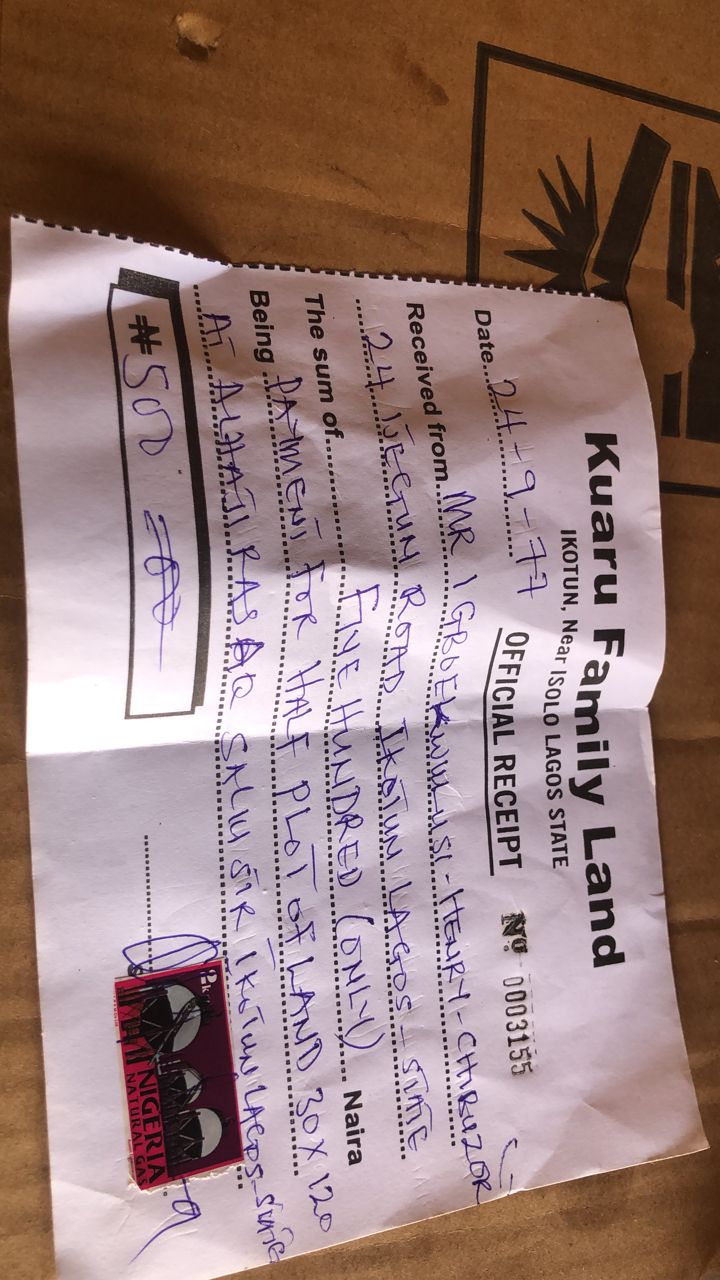 Kuaru Family Land
IKOTUN, Near ISOLO LAGOS STATE
OFFICIAL RECEIPT
No. 0003155
Date 24-9-77
Received from MR IGBOEKWULUSI-HENRY-CHIKUZOR
24 IJEGUN ROAD IKOTUN LAGOS-STATE
The sum of FIVE HUNDRED (ONLY) Naira
Being PAYMENT FOR HALF PLOT OF LAND 30X120
AT ALHAJI RASAQ SALIU STR IKOTUN LAGOS-STATE
₦500
2k
NIGERIA
NATURAL GAS